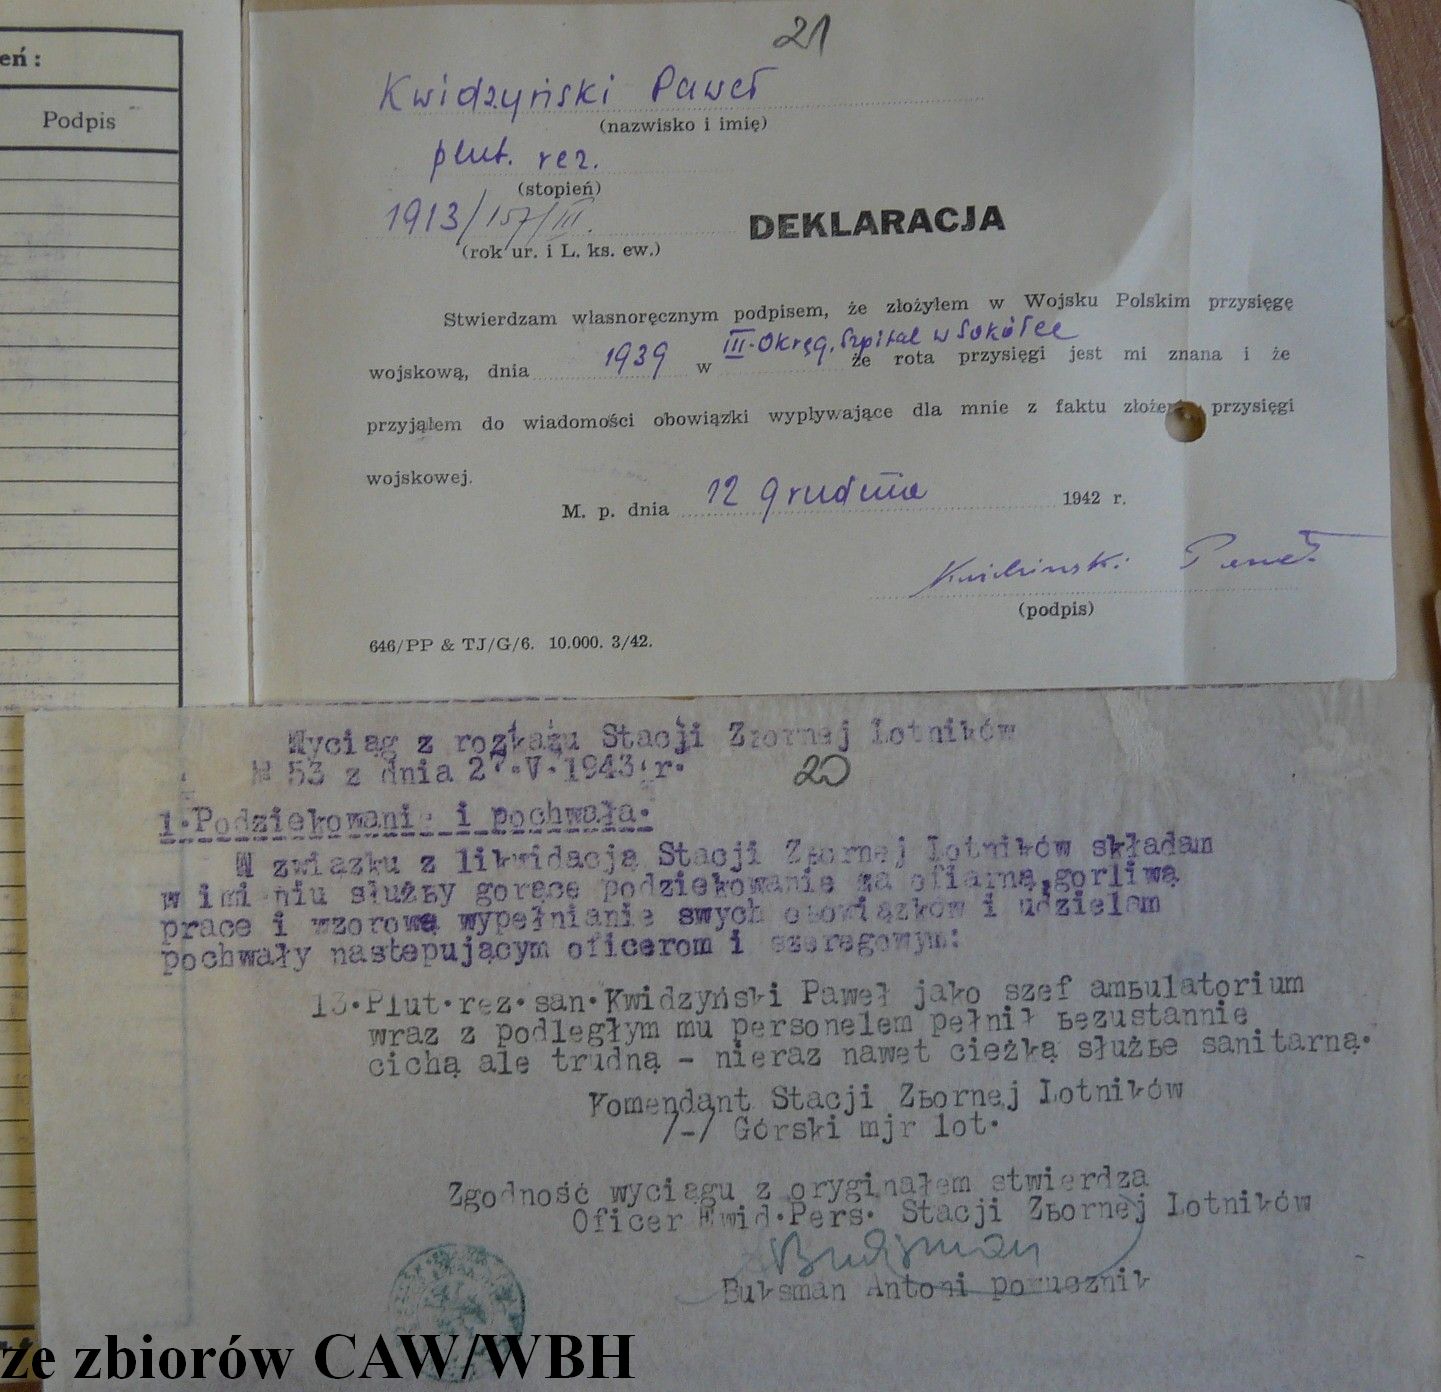 eń:
Podpis
21
Kwidzyński Paweł
(nazwisko i imię)
plut. rez.
(stopień)
1913/157/III.
(rok ur. i L. ks. ew.)
DEKLARACJA
Stwierdzam własnoręcznym podpisem, że złożyłem w Wojsku Polskim przysięgę
wojskową, dnia 1939 w III. Okręg. Szpital w Sokółce że rota przysięgi jest mi znana i że
przyjąłem do wiadomości obowiązki wypływające dla mnie z faktu złożenia przysięgi
wojskowej.
M. p. dnia 12 grudnia 1942 r.
Kwidzinski Paweł
(podpis)
646/PP & TJ/G/6. 10.000. 3/42.
Wyciąg z rozkazu Stacji Zbornej Lotników
№ 53 z dnia 27.V.1943 r.
20
1.Podziekowanie i pochwała.
W zwiazku z likwidacją Stacji Zbornej Lotników składam
w imieniu służby gorące podziekowanie za ofiarną,gorliwą
prace i wzorowe wypełnianie swych obowiązków i udzielam
pochwały nastepującym oficerom i szeregowym:
13.Plut.rez.san.Kwidzyński Paweł jako szef ambulatorium
wraz z podległym mu personelem pełnił bezustannie
cichą ale trudną - nieraz nawet cieżką służbe sanitarną.
Komendant Stacji Zbornej Lotników
/-/ Górski mjr lot.
Zgodność wyciągu z oryginałem stwierdza
Oficer Ewid.Pers. Stacji Zbornej Lotników
Buksman
Buksman Antoni porucznik
ze zbiorów CAW/WBH